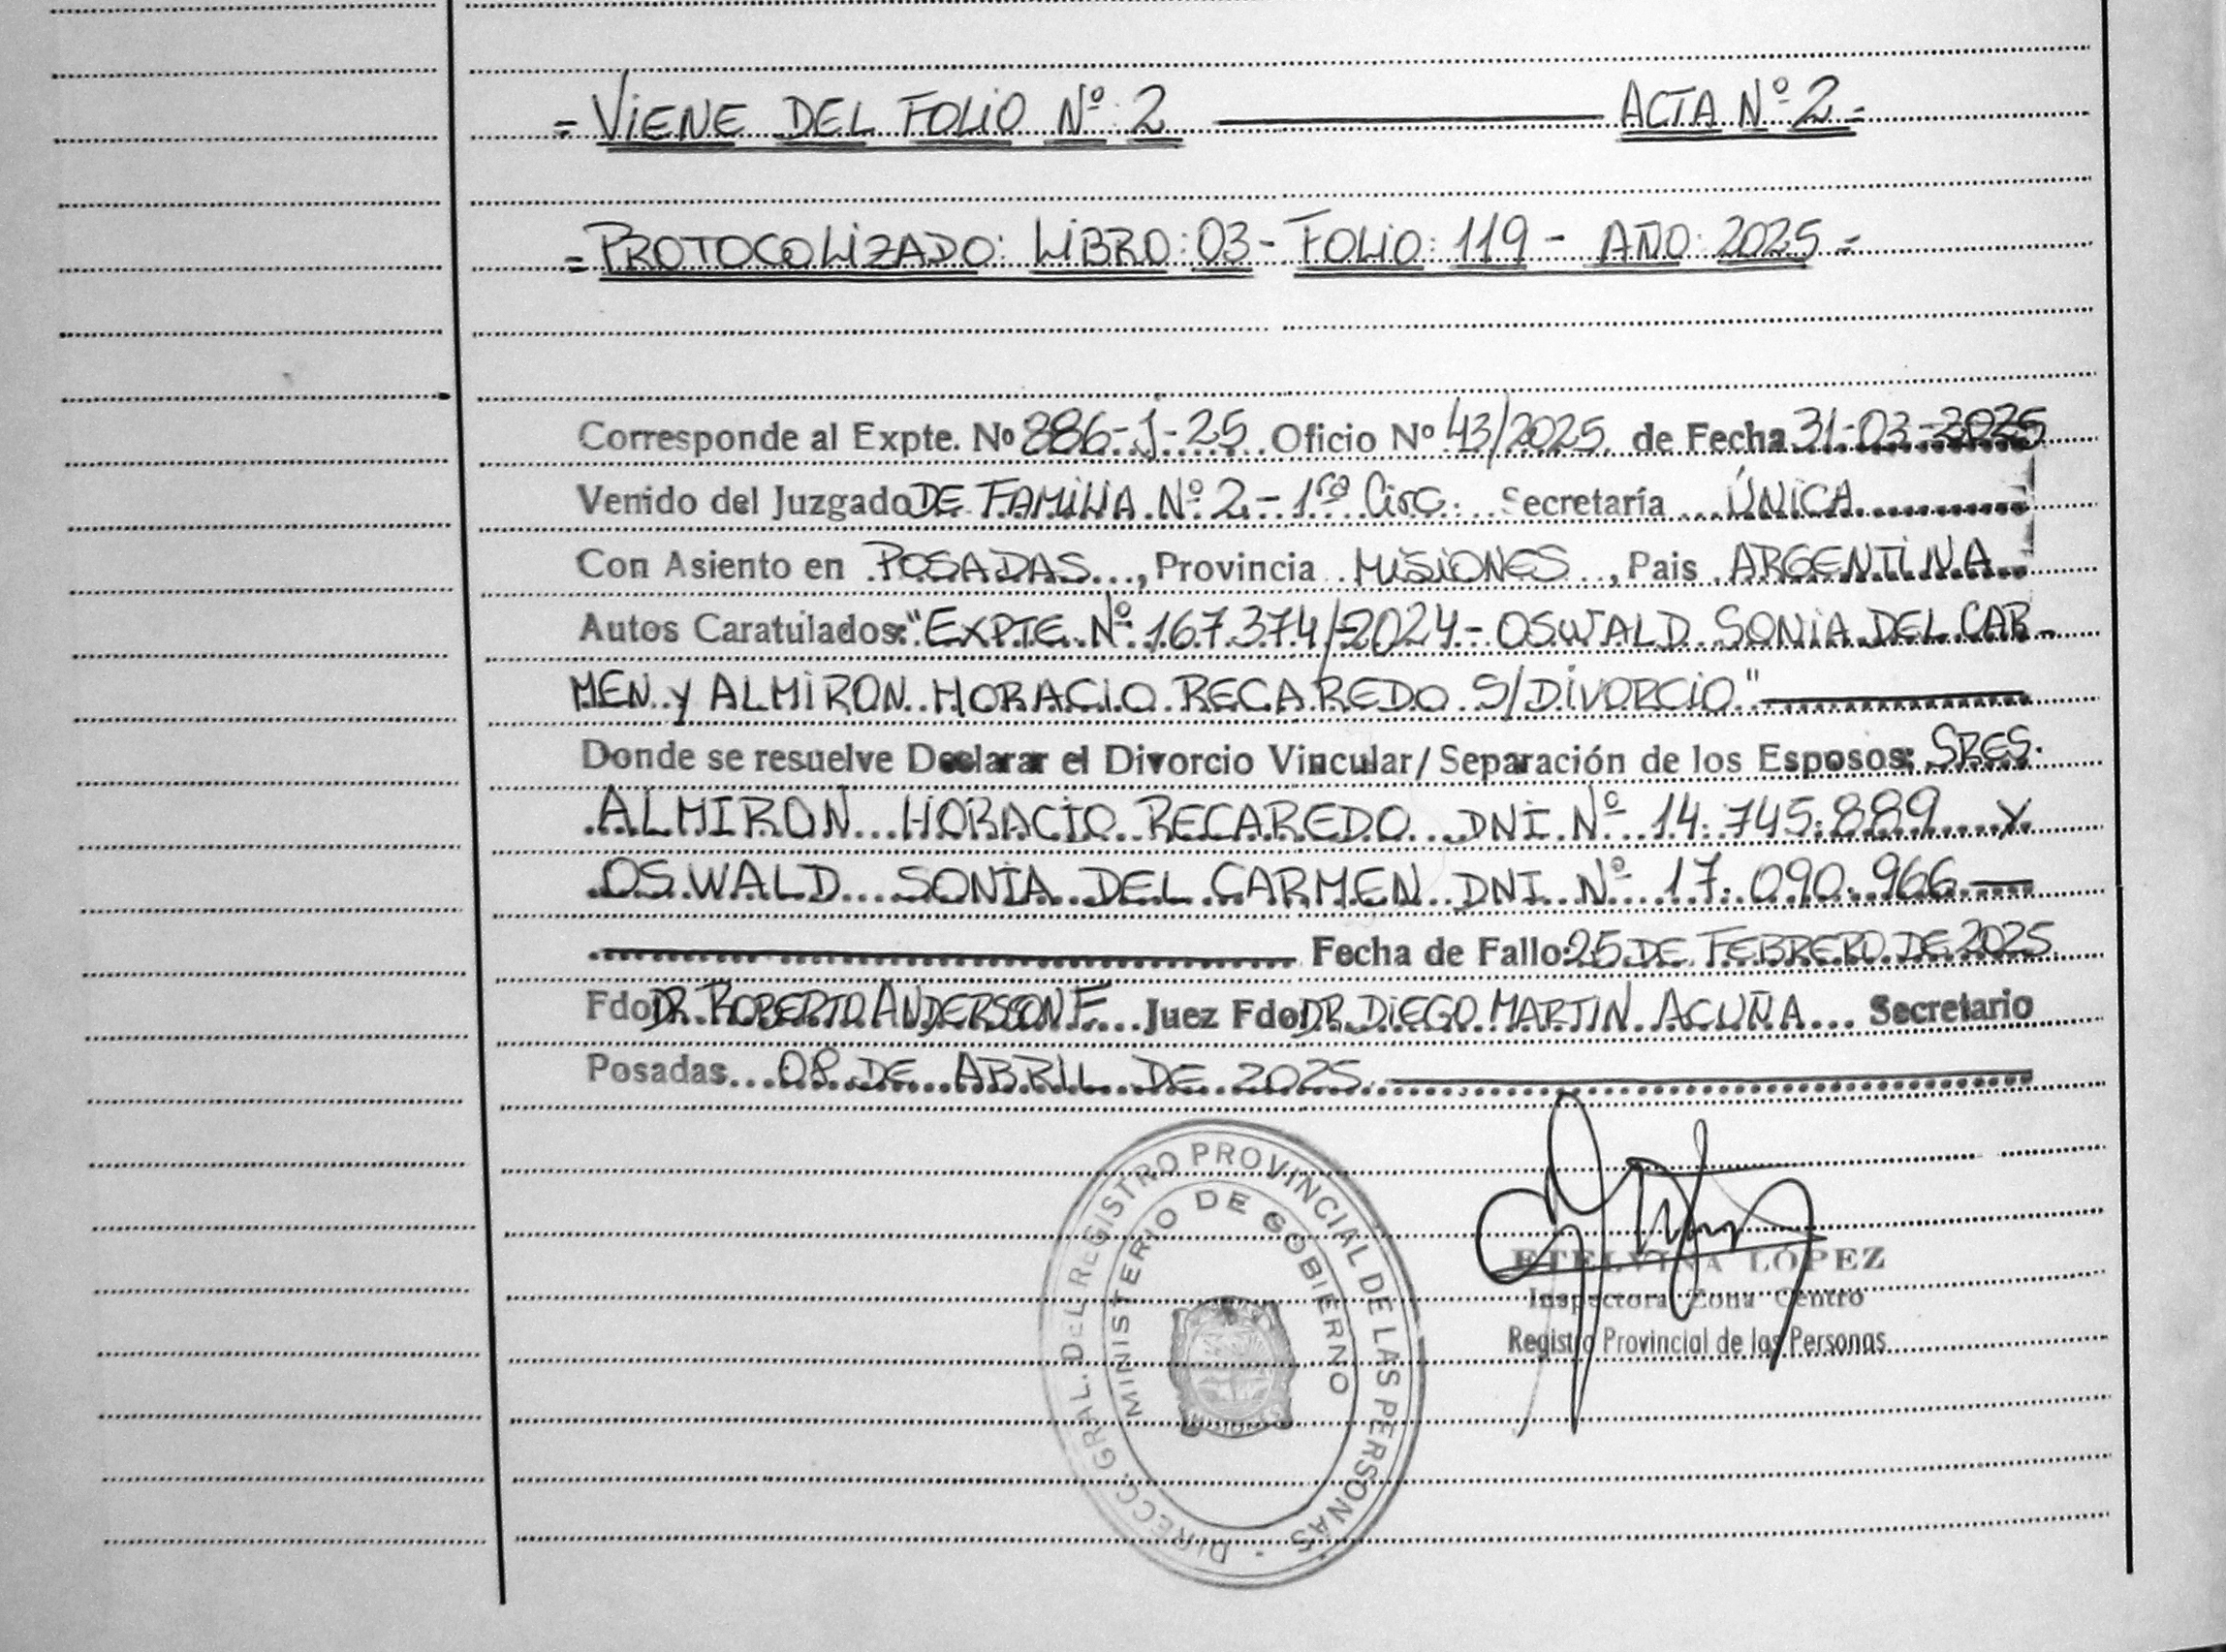 = VIENE DEL FOLIO Nº: 2 ———— ACTA Nº 2 =
= PROTOCOLIZADO: LIBRO: 03 - FOLIO: 119 - AÑO: 2025 =
Corresponde al Expte. Nº 886-J-25 Oficio Nº 43/2025 de Fecha 31-03-2025
Venido del Juzgado DE FAMILIA Nº 2 - 1ra Circ. Secretaría ÚNICA
Con Asiento en POSADAS, Provincia MISIONES, Pais ARGENTINA
Autos Caratulados: "EXPTE. Nº 167.374/2024 - OSWALD SONIA DEL CAR-
MEN y ALMIRON HORACIO RECAREDO S/DIVORCIO"
Donde se resuelve Declarar el Divorcio Vincular/Separación de los Esposos: SRES.
ALMIRON HORACIO RECAREDO DNI Nº 14.745.889 y
OSWALD SONIA DEL CARMEN DNI Nº 17.090.966
Fecha de Fallo: 25 DE FEBRERO DE 2025.
Fdo DR. ROBERTO ANDERSSON F. Juez Fdo DR. DIEGO MARTIN ACUÑA Secretario
Posadas 08 DE ABRIL DE 2025.
DIRECC. GRAL. DEL REGISTRO PROVINCIAL DE LAS PERSONAS
MINISTERIO DE GOBIERNO
MISIONES
ETELVINA LOPEZ
Inspectora Zona Centro
Registro Provincial de las Personas